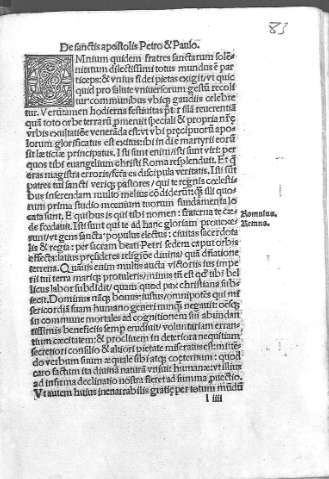 83
De sanctis apostolis Petro & Paulo.
OMnium quidem fratres sanctarum solē
nitatum dilectissimi totus mundus ē par
ticeps: & vnius fidei pietas exigit vt quic
quid pro salute vniuersorum gestū recoli
tur communibus vbiqꝫ gaudiis celebre
tur. Verum hodierna festiuitas
toto orbe terrarū promeruit speciali & propria
vrbis exultatiōe venerāda est: vt vbi precipuorū apo
lorum glorificatus est exitus: ibi in die martyrii eorū
sit leticia principatus. Isti sunt enim viri: per
quos tibi euangelium christi Roma resplenduit. Et q̄
eras magistra erroris: facta es discipula veritatis. Isti sūt
patres tui sancti veriqꝫ pastores / qui te regnis cœlestis
bus inserendam multo melius cōdiderūt
rum primo studio mœnium tuorum fundamenta lo
cata sunt. E quibus is qui tibi nomen
de fœdauit. Isti sunt qui te ad hanc gloriam prouexe
runt: vt gens sancta / populus electus: ciuitas sacerdota
lis & regia: per sacram beati Petri sedem caput orbis
effecta: latius presideres religiōe diuina / quā dñatione
terrena. Quāuis enim multis aucta victoriis ius impe
rii tui terra mariqꝫ protuleris: minus tn̄ est qd̄ tibi bel
licus labor subdidit / quam quod pax christiana
Dominus bonus / iustus / omnipotēs qui mi
sericordiā suam humano generi nunqꝫ negauit:
in commune mortales ad cognitionem sui abundan
tissimis beneficiis semp erudiuit / voluntariam erran
tium cæcitatem: & procliuem in deteriora nequitiam
secretiori consilio & altiori pietate miseratus est: mittē
do verbum suum æquale sibi atqꝫ coeternum: quod
caro factum ita diuinā naturā vniuit humanæ: vt illius
ad infirma declinatio nostra fieret ad summa
Vt autem huius inenarrabilis gratię per totum mūdū
Romulus.
Remus.
l iiii